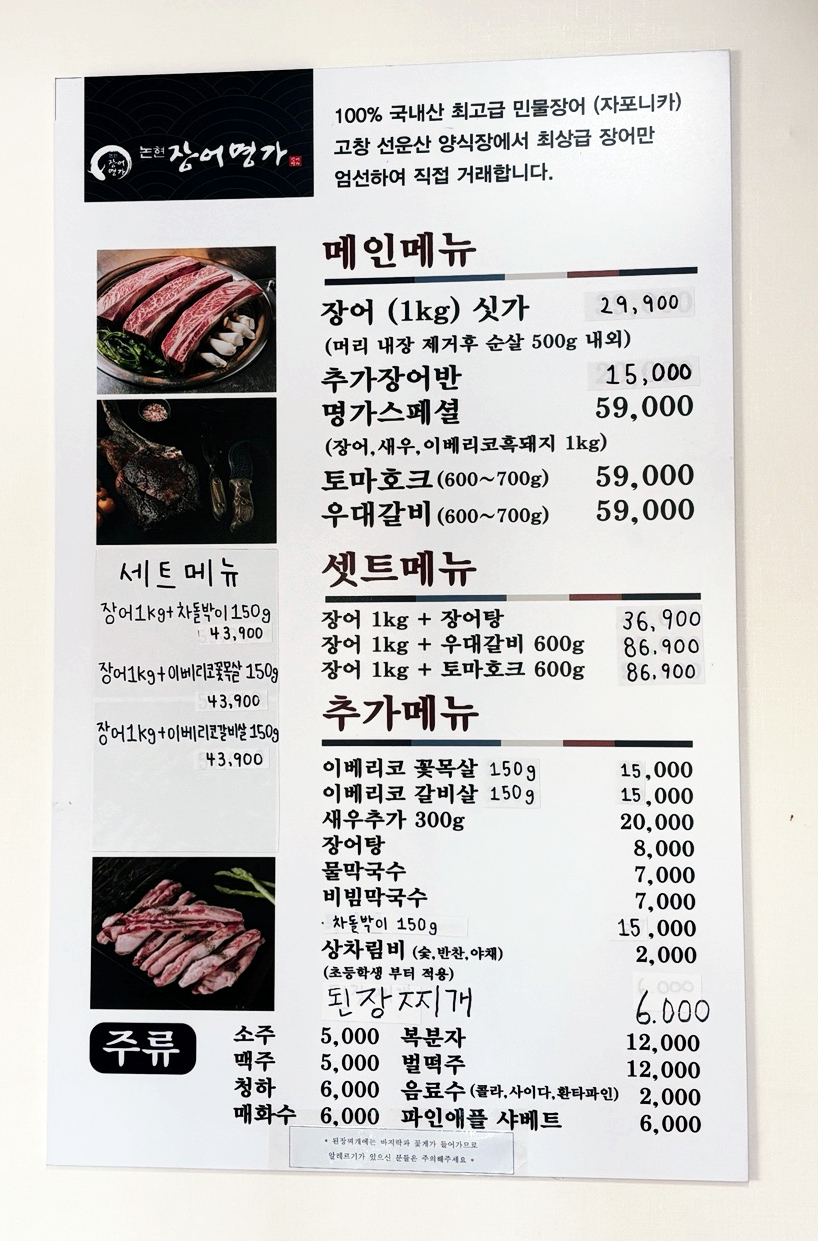 논현 장어명가
장어
명가
100% 국내산 최고급 민물장어 (자포니카)
고창 선운산 양식장에서 최상급 장어만
엄선하여 직접 거래합니다.
메인메뉴
장어 (1kg) 싯가 29,900
(머리 내장 제거후 순살 500g 내외)
추가장어반 15,000
명가스페셜 59,000
(장어,새우,이베리코흑돼지 1kg)
토마호크 (600~700g) 59,000
우대갈비 (600~700g) 59,000
세트메뉴
장어1kg+차돌박이150g
43,900
장어1kg+이베리코꽃목살 150g
43,900
장어1kg+이베리코갈비살 150g
43,900
셋트메뉴
장어 1kg + 장어탕 36,900
장어 1kg + 우대갈비 600g 86.900
장어 1kg + 토마호크 600g 86.900
추가메뉴
이베리코 꽃목살 150g 15,000
이베리코 갈비살 150g 15,000
새우추가 300g 20,000
장어탕 8,000
물막국수 7,000
비빔막국수 7,000
· 차돌박이 150g 15,000
상차림비 (숯,반찬,야채) 2,000
(초등학생 부터 적용)
된장찌개 6.000
주류
소주 5,000 복분자 12,000
맥주 5,000 벌떡주 12,000
청하 6,000 음료수 (콜라,사이다,환타파인) 2,000
매화수 6,000 파인애플 샤베트 6,000
* 된장찌개에는 바지락과 꽃게가 들어가므로
알레르기가 있으신 분들은 주의해주세요 *